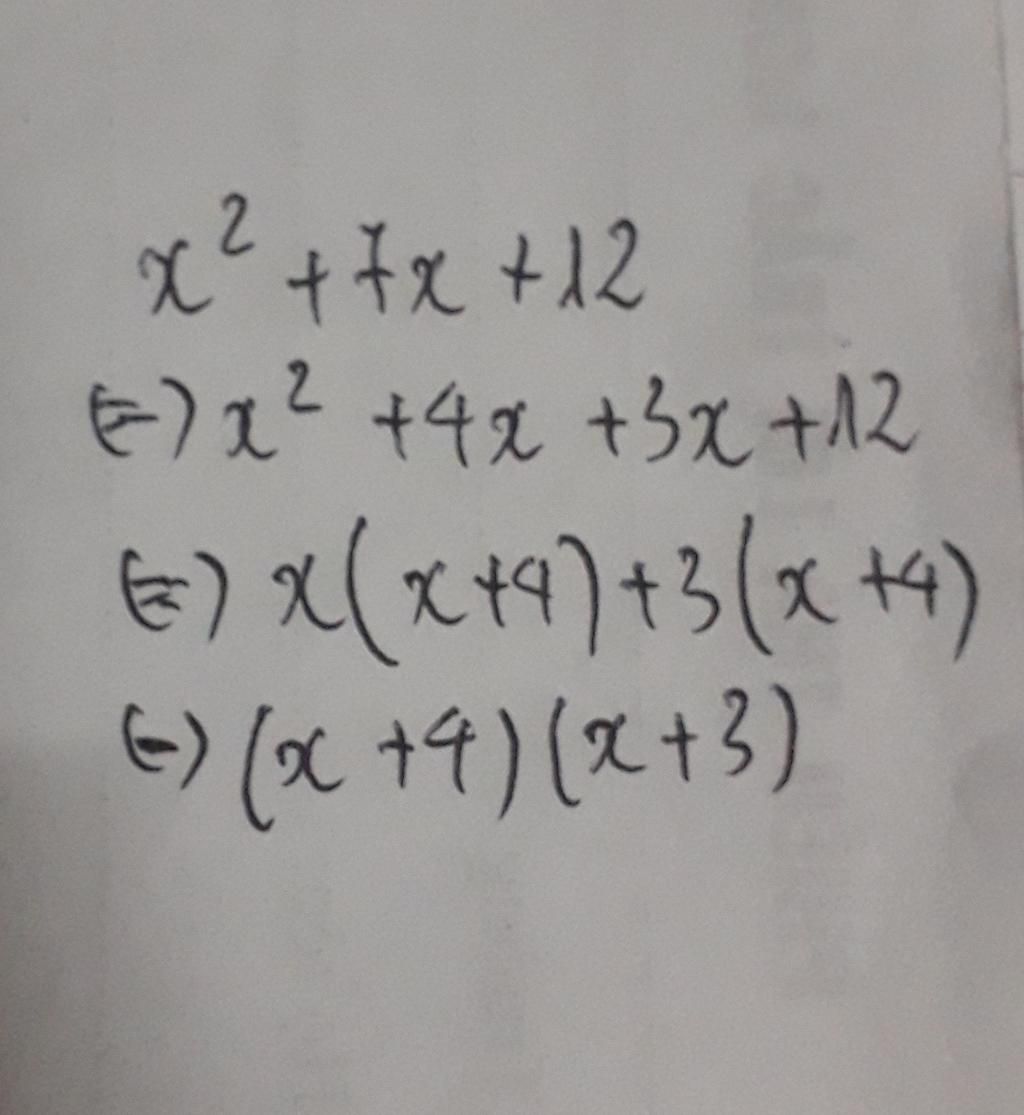 x² + 7x + 12
⇔ x² + 4x + 3x + 12
⇔ x(x+4) + 3(x+4)
⇔ (x+4)(x+3)